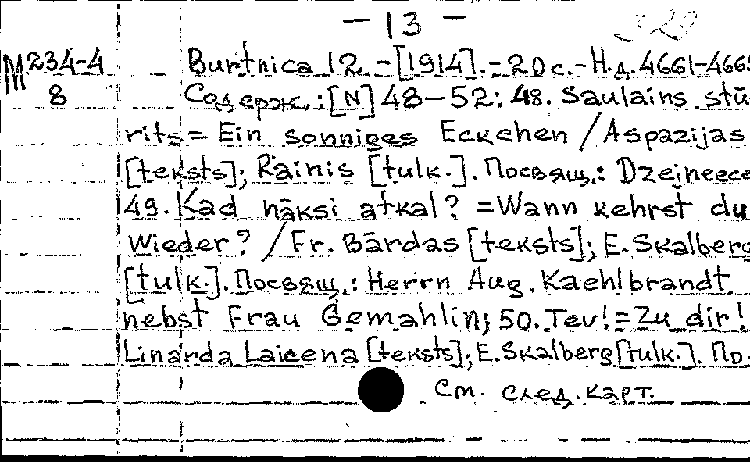 – 13 –
M 234-4
8
Burtnica 12. – [1914]. – 20 c. – Н.д. 4661-466
Содерж.: [N] 48–52: 48. Saulains stū
rits = Ein sonniges Eckchen / Aspazijas
[teksts]; Rainis [tulk.]. Посвящ.: Dzejneece
49. Kad nāksi atkal? = Wann kehrst du
wieder? / Fr. Bārdas [teksts]; E. Skalberg
[tulk.]. Посвящ.: Herrn Aug. Kaehlbrandt
nebst Frau Gemahlin; 50. Tev! = Zu dir!
Linarda Laicena [teksts]; E. Skalberg [tulk.]. По-
См. след. карт.